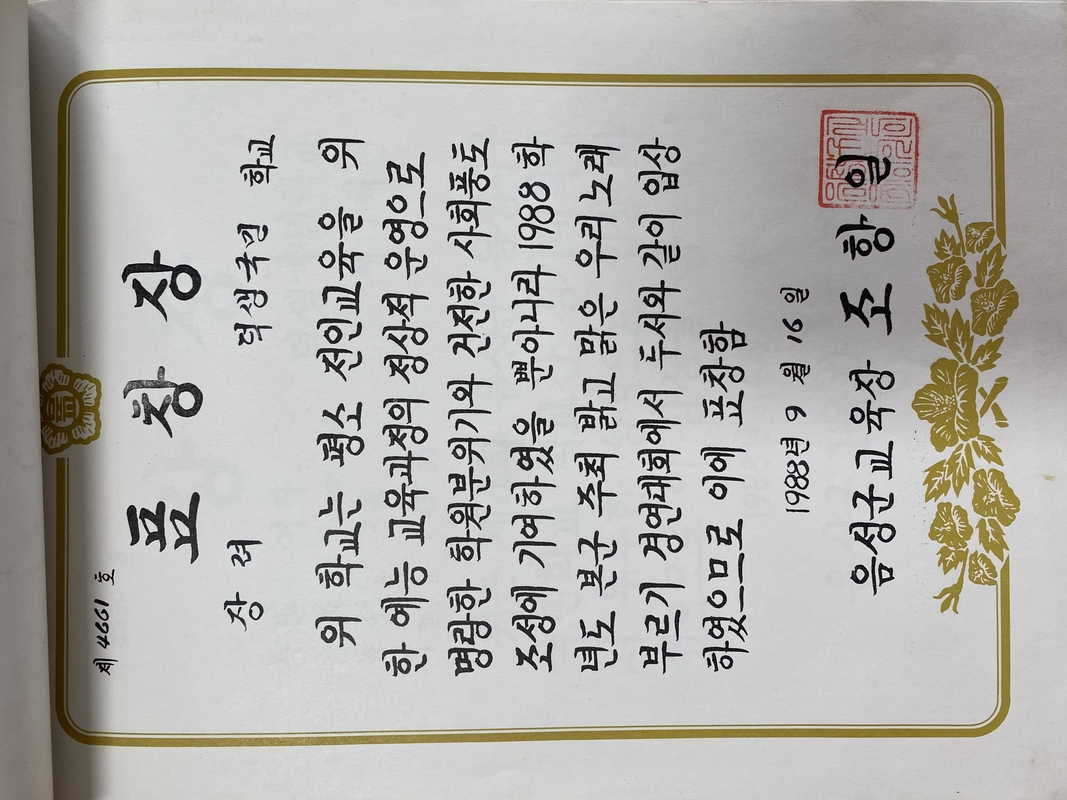 제 4661 호
표 창 장
장 려
덕생국민 학교
위 학교는 평소 전인교육을 위
한 예능 교육과정의 정상적 운영으로
명랑한 학원분위기와 건전한 사회풍도
조성에 기여하였을 뿐아니라 1988 학
년도 본군 주최 밝고 맑은 우리노래
부르기 경연대회에서 두서와 같이 입상
하였으므로 이에 표창함
1988년 9 월 16 일
음성군교육장 조 항 일